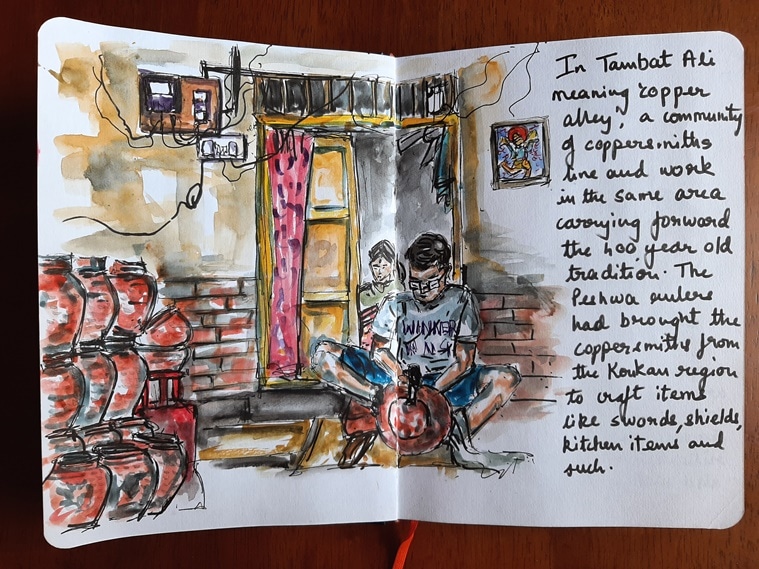 In Tambat Ali
meaning 'copper
alley', a community
of coppersmiths
live and work
in the same area
carrying forward
the 400 year old
tradition. The
Peshwa rulers
had brought the
coppersmiths from
the Konkan region
to craft items
like swords, shields,
kitchen items and
such.
WINNER